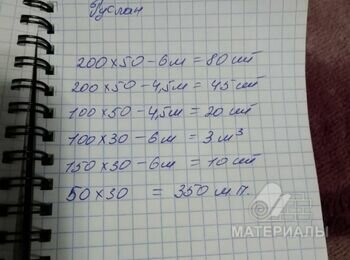 Руслан
200×50–6м = 80 шт
200×50–4,5м = 45 шт
100×50–4,5м = 20 шт
100×30–6м = 3 м³
150×30–6м = 10 шт
50×30 = 350 м.п.
МАТЕРИАЛЫ